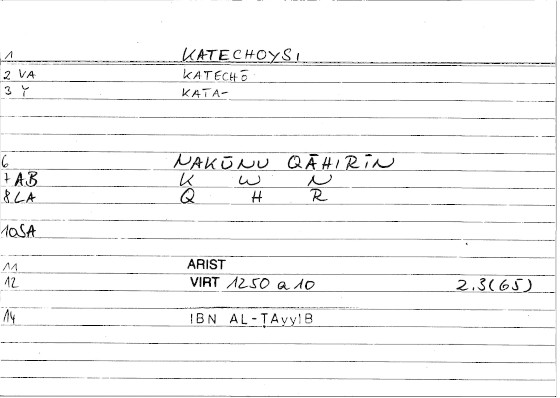 1 KATECHOYSI
2 VA KATECHŌ
3 Y KATA-
6 NAKŪNU QĀHIRĪN
7 AB K W N
8 LA Q H R
10 SA
11 ARIST
12 VIRT 1250 a 10 2.3(65)
14 IBN AL-ṬAyyIB